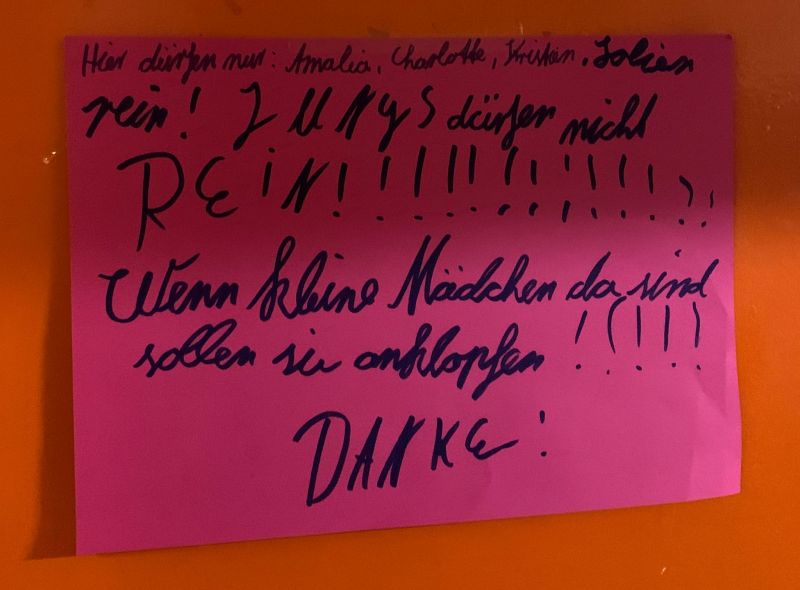 Hier dürfen nur: Amalia, Charlotte, Kristin, Jolien
rein! JUNGS dürfen nicht
REiN!!!!!!!!!!!!!!!
Wenn kleine Mädchen da sind
sollen sie anklopfen !!!!!
DANKE!